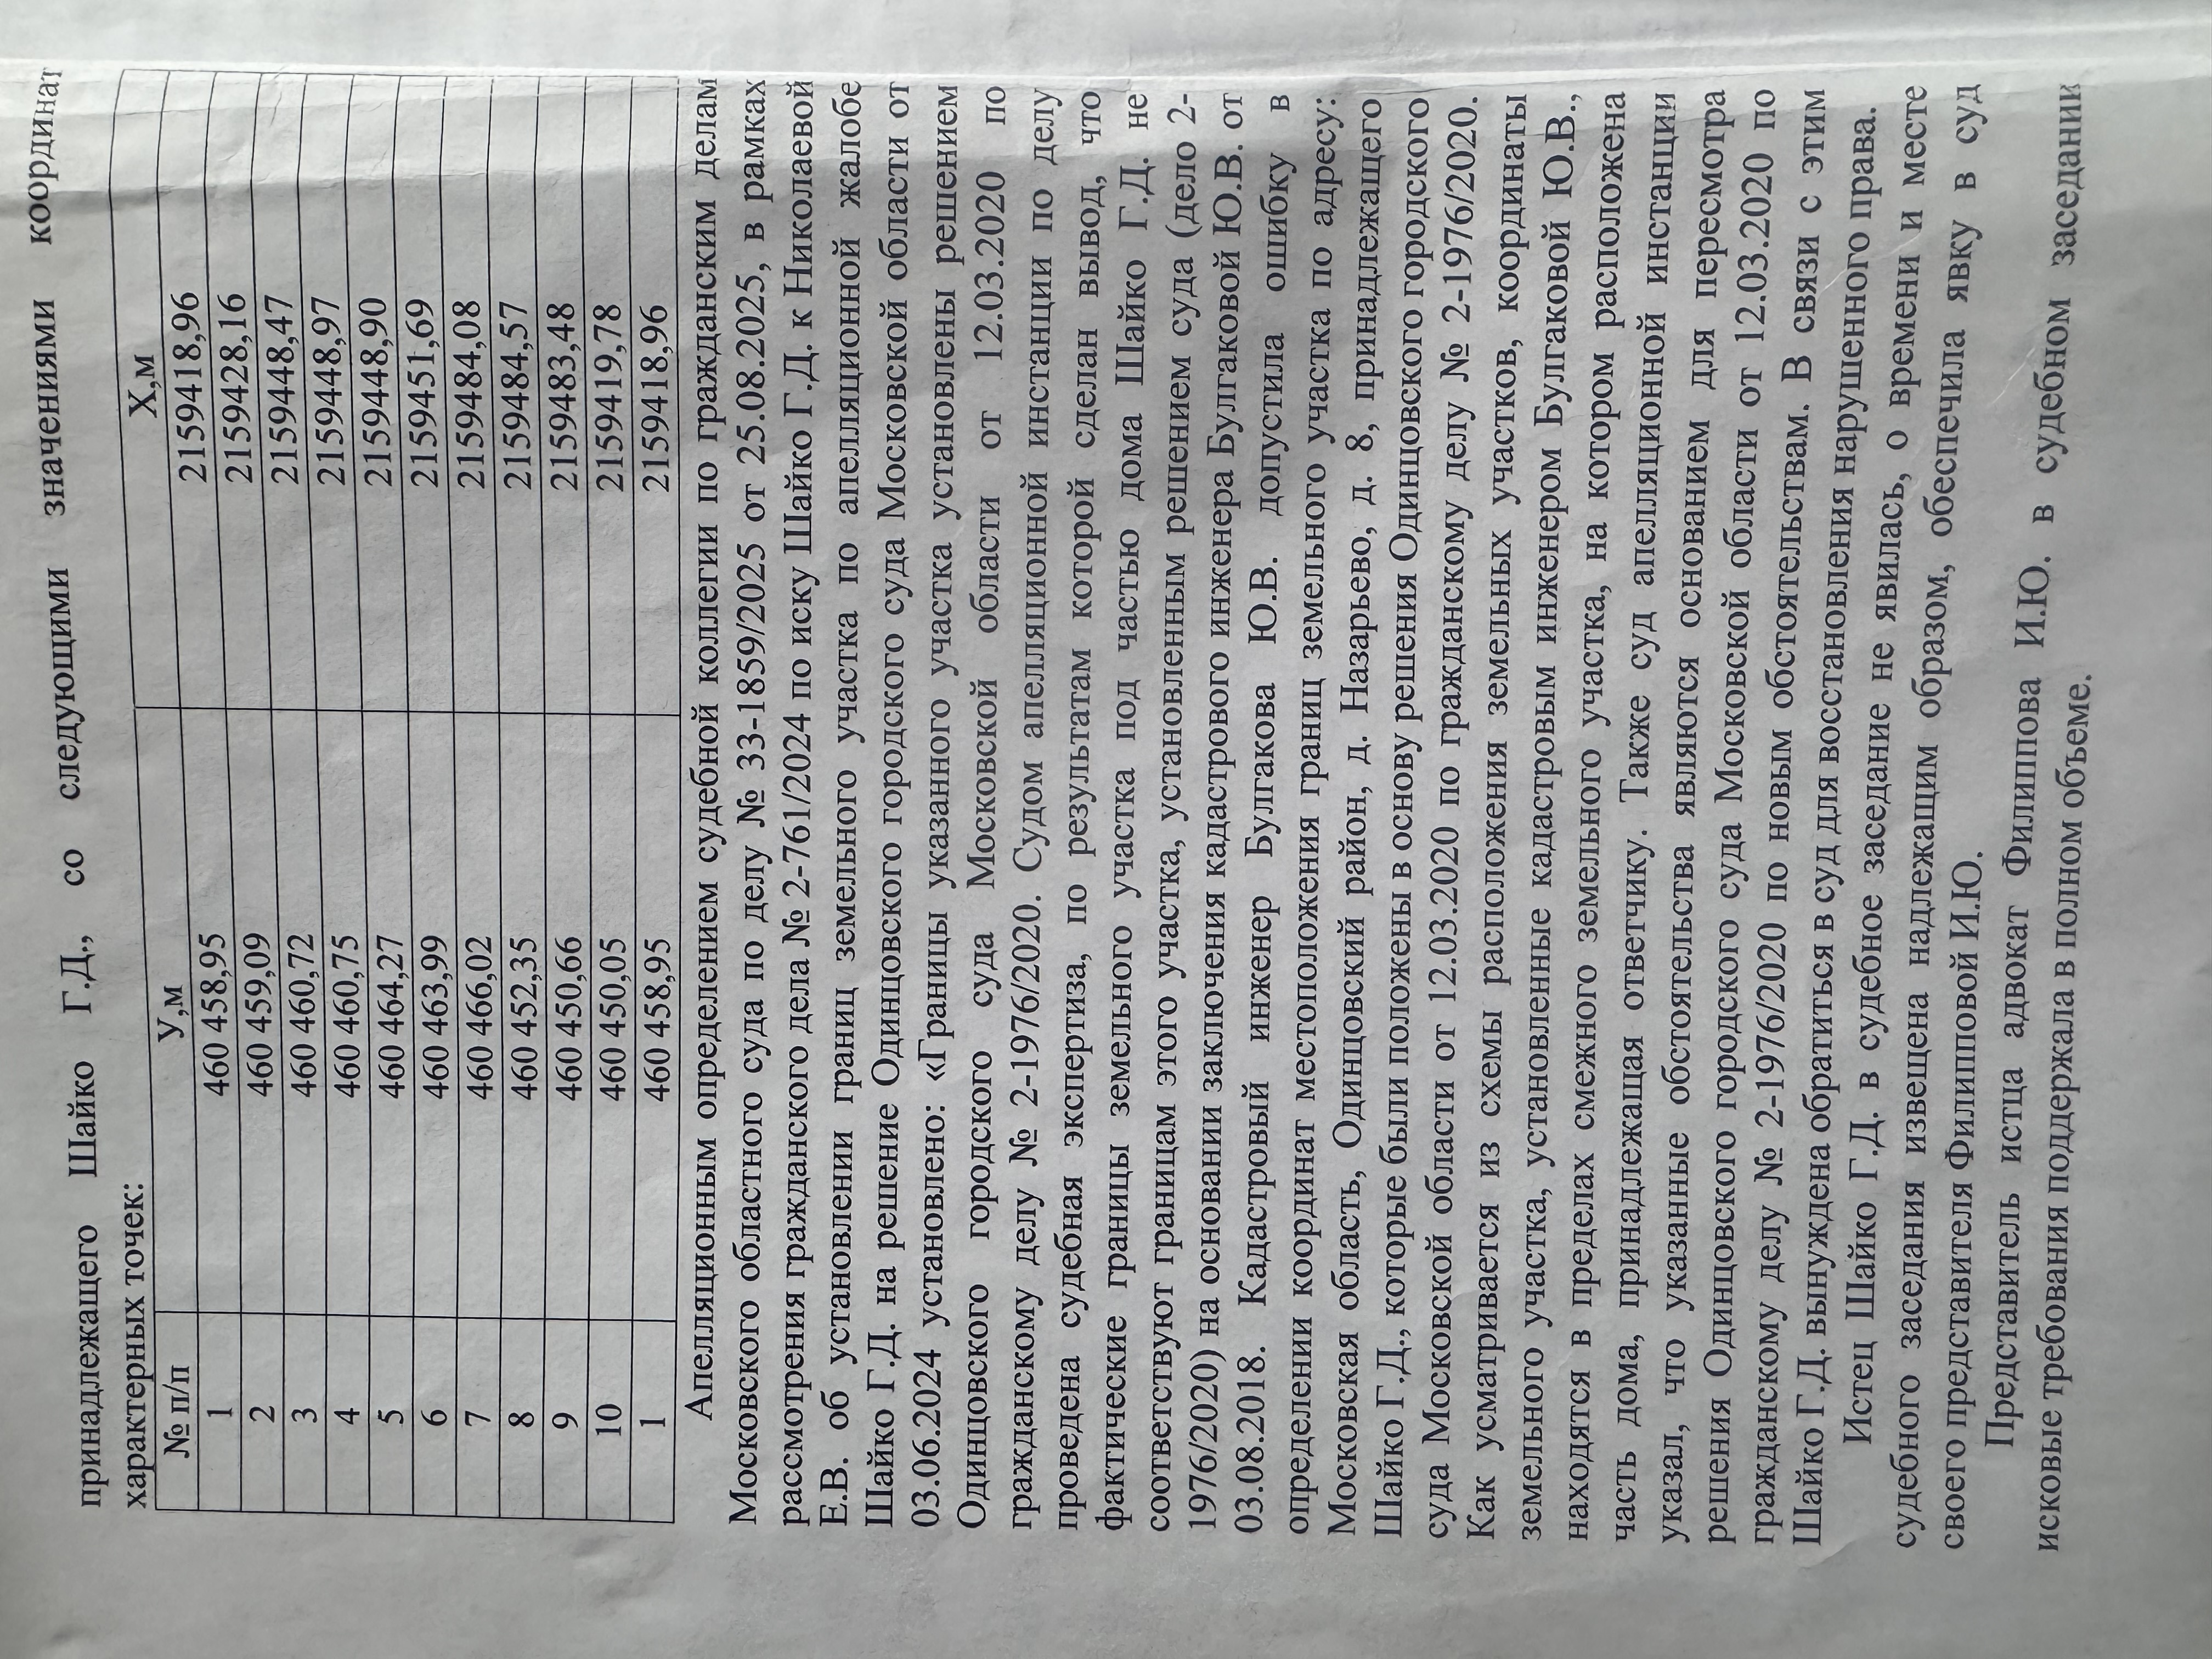 принадлежащего Шайко Г.Д., со следующими значениями координат
характерных точек:
№ п/п У,м Х,м
1 460 458,95 2159418,96
2 460 459,09 2159428,16
3 460 460,72 2159448,47
4 460 460,75 2159448,97
5 460 464,27 2159448,90
6 460 463,99 2159451,69
7 460 466,02 2159484,08
8 460 452,35 2159484,57
9 460 450,66 2159483,48
10 460 450,05 2159419,78
1 460 458,95 2159418,96
Апелляционным определением судебной коллегии по гражданским делам
Московского областного суда по делу № 33-1859/2025 от 25.08.2025, в рамках
рассмотрения гражданского дела № 2-761/2024 по иску Шайко Г.Д. к Николаевой
Е.В. об установлении границ земельного участка по апелляционной жалобе
Шайко Г.Д. на решение Одинцовского городского суда Московской области от
03.06.2024 установлено: «Границы указанного участка установлены решением
Одинцовского городского суда Московской области от 12.03.2020 по
гражданскому делу № 2-1976/2020. Судом апелляционной инстанции по делу
проведена судебная экспертиза, по результатам которой сделан вывод, что
фактические границы земельного участка под частью дома Шайко Г.Д. не
соответствуют границам этого участка, установленным решением суда (дело 2-
1976/2020) на основании заключения кадастрового инженера Булгаковой Ю.В. от
03.08.2018. Кадастровый инженер Булгакова Ю.В. допустила ошибку в
определении координат местоположения границ земельного участка по адресу:
Московская область, Одинцовский район, д. Назарьево, д. 8, принадлежащего
Шайко Г.Д., которые были положены в основу решения Одинцовского городского
суда Московской области от 12.03.2020 по гражданскому делу № 2-1976/2020.
Как усматривается из схемы расположения земельных участков, координаты
земельного участка, установленные кадастровым инженером Булгаковой Ю.В.,
находятся в пределах смежного земельного участка, на котором расположена
часть дома, принадлежащая ответчику. Также суд апелляционной инстанции
указал, что указанные обстоятельства являются основанием для пересмотра
решения Одинцовского городского суда Московской области от 12.03.2020 по
гражданскому делу № 2-1976/2020 по новым обстоятельствам. В связи с этим
Шайко Г.Д. вынуждена обратиться в суд для восстановления нарушенного права.
Истец Шайко Г.Д. в судебное заседание не явилась, о времени и месте
судебного заседания извещена надлежащим образом, обеспечила явку в суд
своего представителя Филипповой И.Ю.
Представитель истца адвокат Филиппова И.Ю. в судебном заседании
исковые требования поддержала в полном объеме.